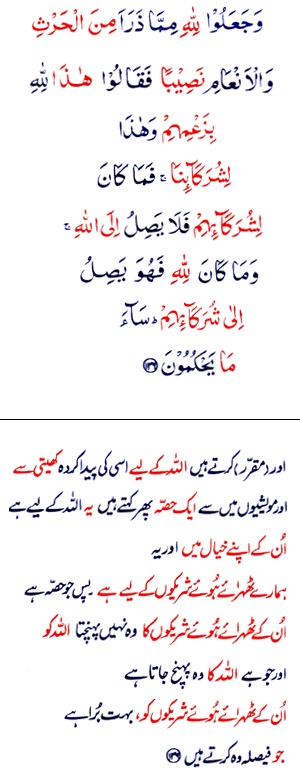 وَجَعَلُوْا لِلّٰهِ مِمَّا ذَرَاَ مِنَ الْحَرْثِ
وَالْاَنْعَامِ نَصِيْبًا فَقَالُوْا هٰذَا لِلّٰهِ
بِزَعْمِهِمْ وَهٰذَا
لِشُرَكَآئِنَا ۚ فَمَا كَانَ
لِشُرَكَآئِهِمْ فَلَا يَصِلُ اِلَى اللّٰهِ ۚ
وَمَا كَانَ لِلّٰهِ فَهُوَ يَصِلُ
اِلٰى شُرَكَآئِهِمْ ؕ سَآءَ
مَا يَحْكُمُوْنَ ۝۱۳۶
اور (مقرّر) کرتے ہیں اللہ کے لیے اسی کی پیدا کردہ کھیتی سے
اور مویشیوں میں سے ایک حصّہ پھر کہتے ہیں یہ اللہ کے لیے ہے
اُن کے اپنے خیال میں اور یہ
ہمارے ٹھہرائے ہُوئے شریکوں کے لیے ہے۔ پس جو حصّہ ہے
اُن کے ٹھہرائے ہُوئے شریکوں کا وہ نہیں پہنچتا اللہ کو
اور جو ہے اللہ کا وہ پہنچ جاتا ہے
اُن کے ٹھہرائے ہُوئے شریکوں کو، بہت بُرا ہے
جو فیصلہ وہ کرتے ہیں ۝۱۳۶